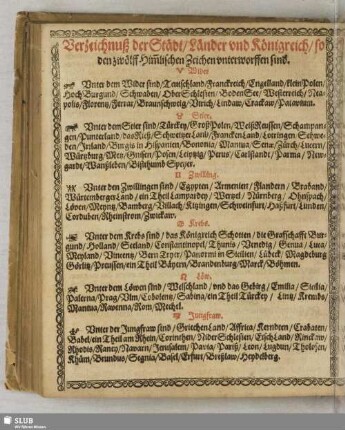 Verzeichnuß der Städt/ Länder vnd Königreich/ so
den zwölff Him̃lischen Zeichen vnterworffen sind.
♈ Wider
Vnter dem Wider sind/ Teutschland/ Franckreich/ Engelland/ klein Polen/
Hoch Burgund/ Schwaben/ Ober Schlesien/ BodenSee/ Wetterreich/ Nea-
polis/ Florentz/ Ferrar/ Braunschweig/ Lindaw/ Crackaw/
♉ Stier.
Vnter dem Stier sind/ Türckey/ Groß Polen/ Weiß Reussen/ Schampan-
gen/ Schweitzer Land/ Francken Land/ Loringen/ Schwe-
den/ Irrland/ in Hispanien/ Bononia/ Mantua/ Sena/ Zürch/ Lucern/
Würtzburg/ Metz/ Posen/ Leiptzig/ Perus/ Parma/
gardt/ Bisthumb Speyer.
♊ Zwilling.
Vnter den Zwillingen sind/ Egypten/ Armenien/ Flandern/ Braband/
WürtenbergerLand/ ein Theil Lampardey/ Nürnberg/
Löven/ Meyntz/ Bamberg/ Villach/ Kitzingen/ Schweinfurt/ Haßfurt/ Lunden/
Corduben/ Rheinstrom/ Zwickaw.
♋ Krebs.
Vnter dem Krebs sind/ das Königreich Schotten/ die Grafschafft Bur-
gund/ Holland/ Seeland/ Constantinopel/ Thunis/ Venedig/ Genua/ Luca/
Meyland/ Vincentz/ Bern/ Tryer/ in Sicilien/ Lübeck/ Magdeburg
Görlitz/ Preussen/ ein Theil Bäyern/ Brandenburg/ Marck/ Böhmen.
♌ Löw.
Vnter dem Löwen sind/ Welschland/ vnd das Gebürg/ Emilia/ Sicilia/
Palerna/ Prag/ Vlm/ Coblentz/ Sabina/ ein Theil Türckey/ Lintz/ Krembs/
Mantua/ Ravenna/ Rom/
♍ Jungfraw.
Vnter der Jungfraw sind/ Griechen Land/ Assiria/ Kernten/
Babel/ ein Theil am Rhein/ Corinthen/ Nider Schlesien/
Rhodis/ Navarn/ Jerusalem/ Pavia/ Pariß/ Leon/ Lugdun/ Tholosen/
Brundus/ Segnia/ Basel/ Erfurt/ Breßlaw/ Heydelberg.
SLUB
Wir führen Wissen.